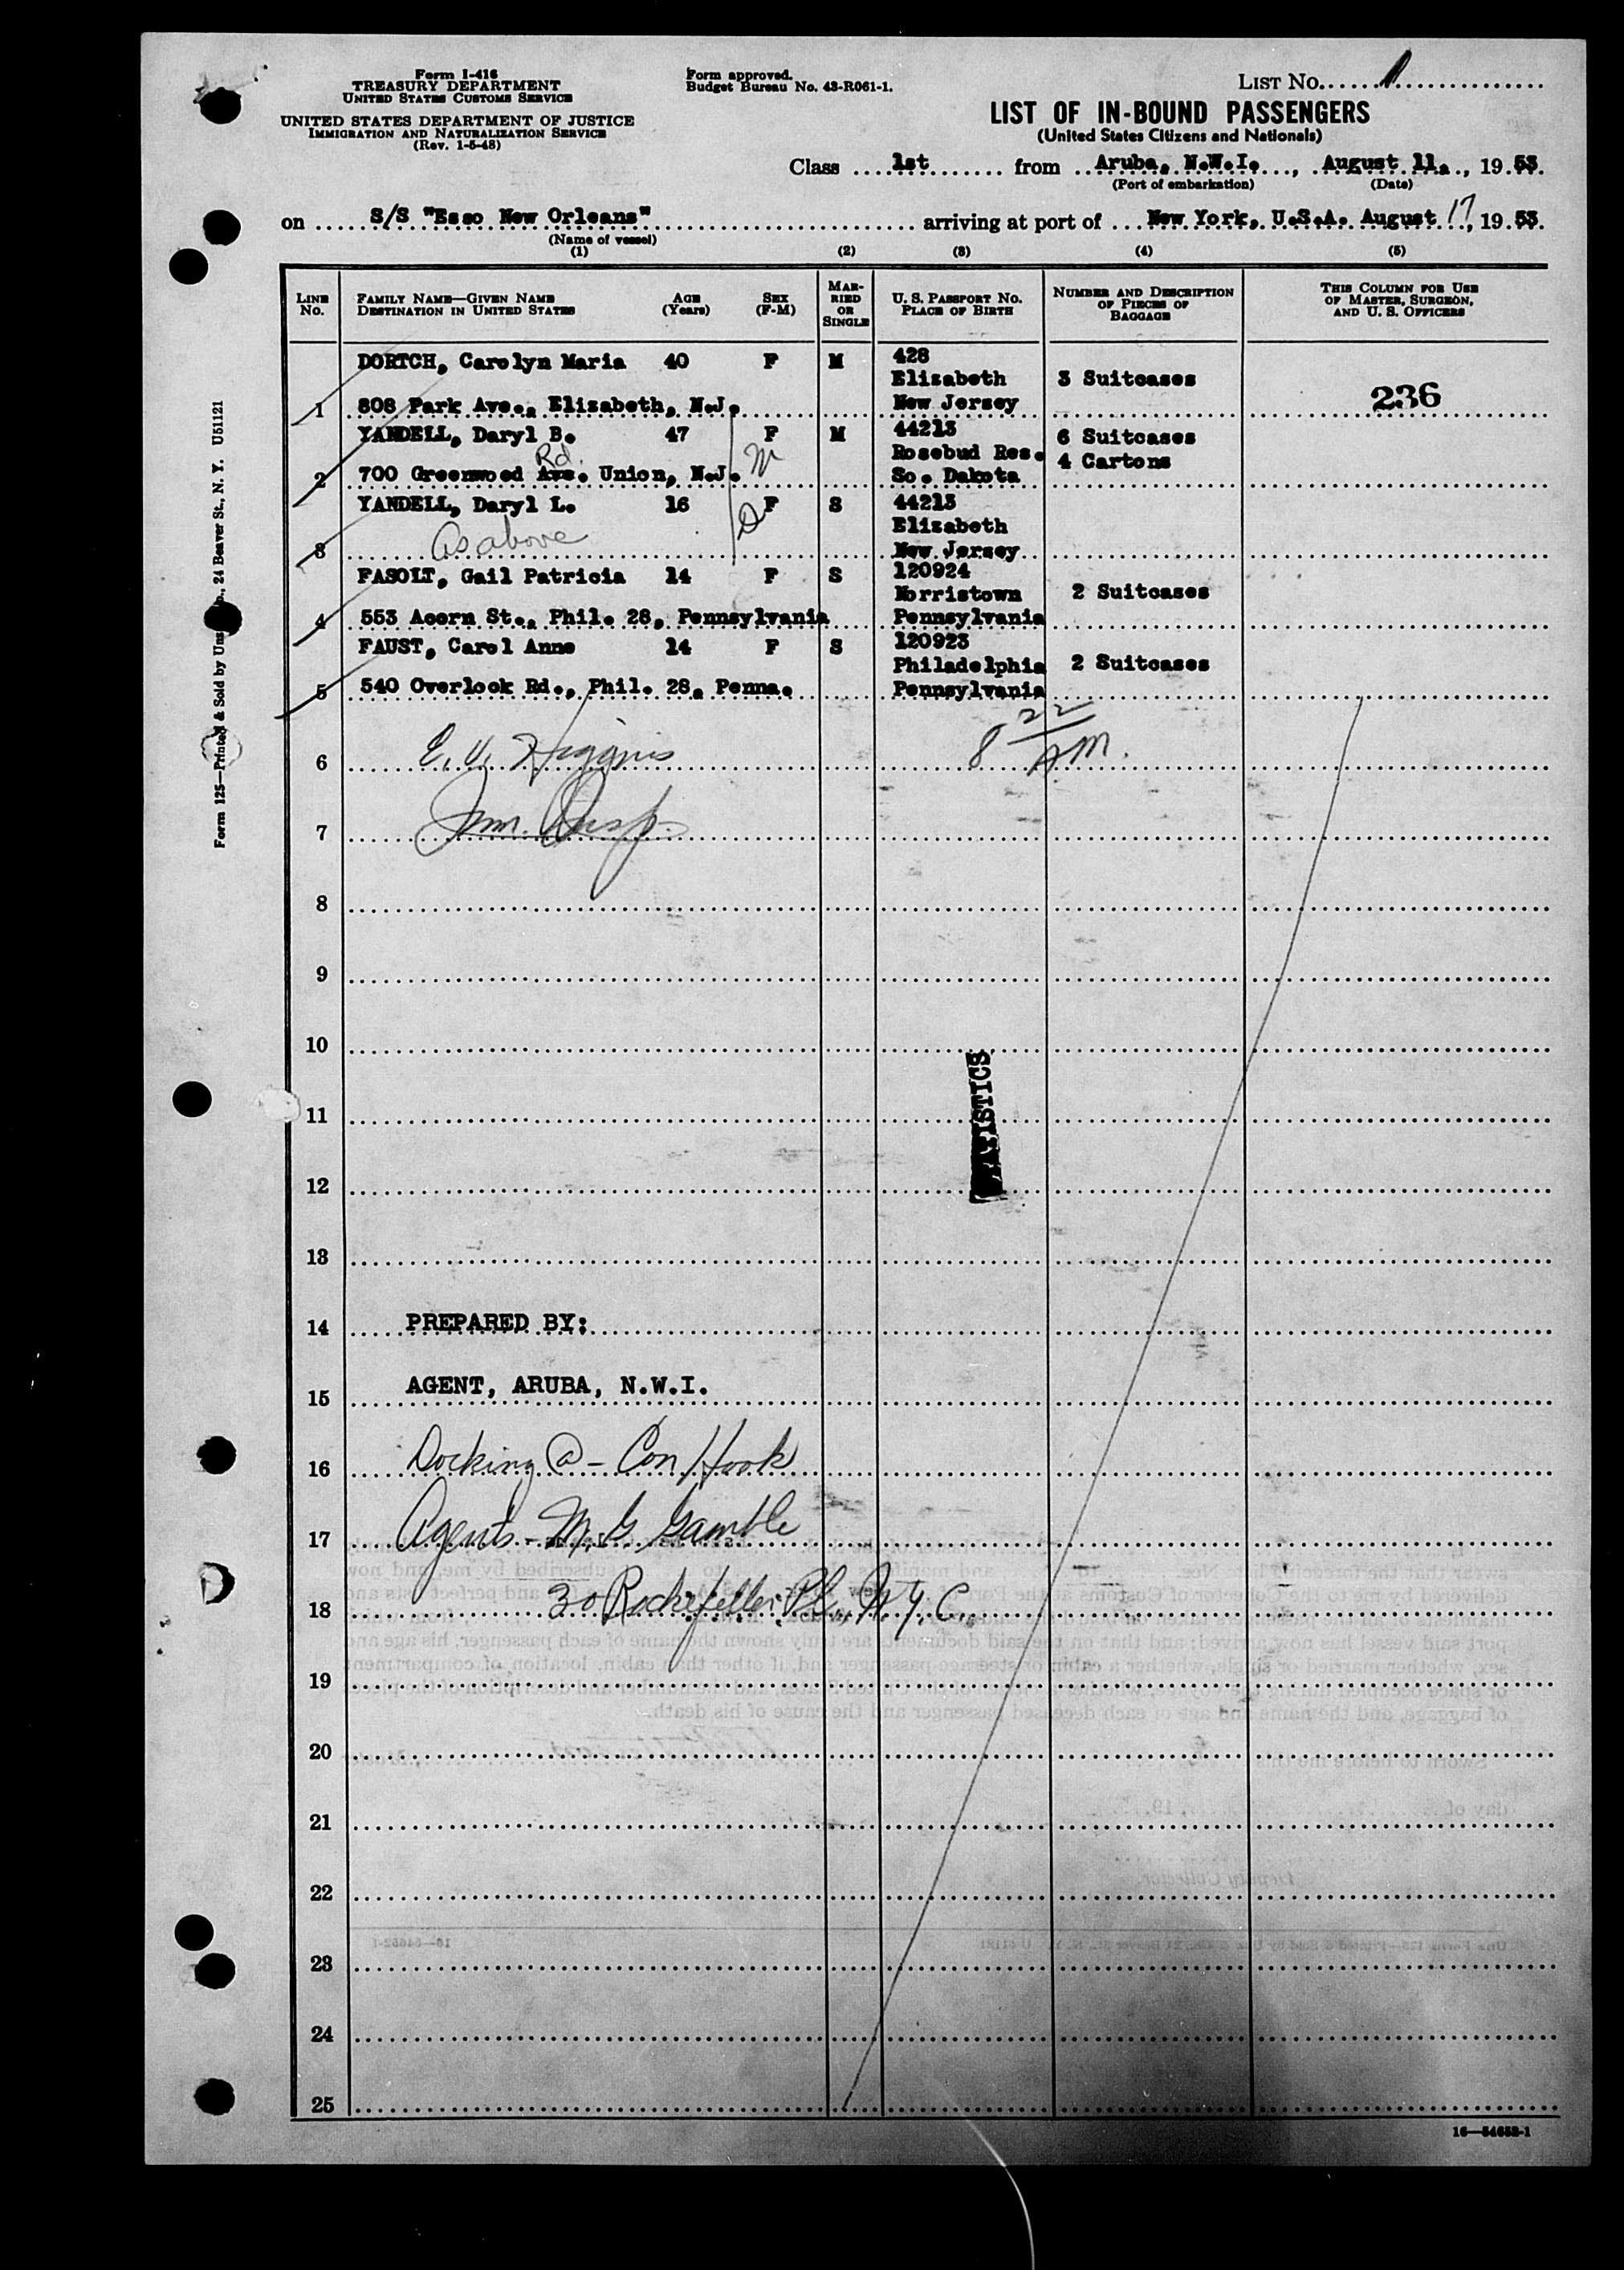 Form I-416
TREASURY DEPARTMENT
UNITED STATES CUSTOMS SERVICE
UNITED STATES DEPARTMENT OF JUSTICE
IMMIGRATION AND NATURALIZATION SERVICE
(Rev. 1-5-48)
Form approved.
Budget Bureau No. 43-R061-1.
LIST NO. 1
LIST OF IN-BOUND PASSENGERS
(United States Citizens and Nationals)
Class 1st from Aruba, N.W.I., August 11, 1953.
(Port of embarkation) (Date)
on S/S "Esso New Orleans" arriving at port of New York, U.S.A. August 17, 1953.
(Name of vessel)
(1) (2) (3) (4) (5)
LINE NO. FAMILY NAME—GIVEN NAME DESTINATION IN UNITED STATES AGE (Years) SEX (F-M) MARRIED OR SINGLE U. S. PASSPORT NO. PLACE OF BIRTH NUMBER AND DESCRIPTION OF PIECES OF BAGGAGE THIS COLUMN FOR USE OF MASTER, SURGEON, AND U. S. OFFICERS
DORTCH, Carolyn Maria 40 F M 428
Elizabeth 3 Suitcases
236
1 808 Park Ave., Elizabeth, N.J. New Jersey
YANDELL, Daryl B. 47 F M 44213
6 Suitcases
Rosebud Res.
Rd. M 4 Cartons
2 700 Greenwood Ave. Union, N.J. So. Dakota
YANDELL, Daryl L. 16 F S 44213
D
Elizabeth
3 As above New Jersey
FASOLT, Gail Patricia 14 F S 120924
Norristown 2 Suitcases
4 553 Acorn St., Phil. 28, Pennsylvania Pennsylvania
FAUST, Carol Anne 14 F S 120923
Philadelphia 2 Suitcases
5 540 Overlook Rd., Phil. 28, Penna. Pennsylvania
6 E. V. Higgins 8 22 AM.
7 Imm. Insp.
8
9
10
11
12
13
14 PREPARED BY:
15 AGENT, ARUBA, N.W.I.
16 Docking @ - Con Hook
17 Agents - M. G. Gamble
18 30 Rockefeller Pl., N.Y.C.
19
20
21
22
23
24
25
16—54652-1
Form 125—Printed & Sold by 24 Beaver St., N. Y. U51121